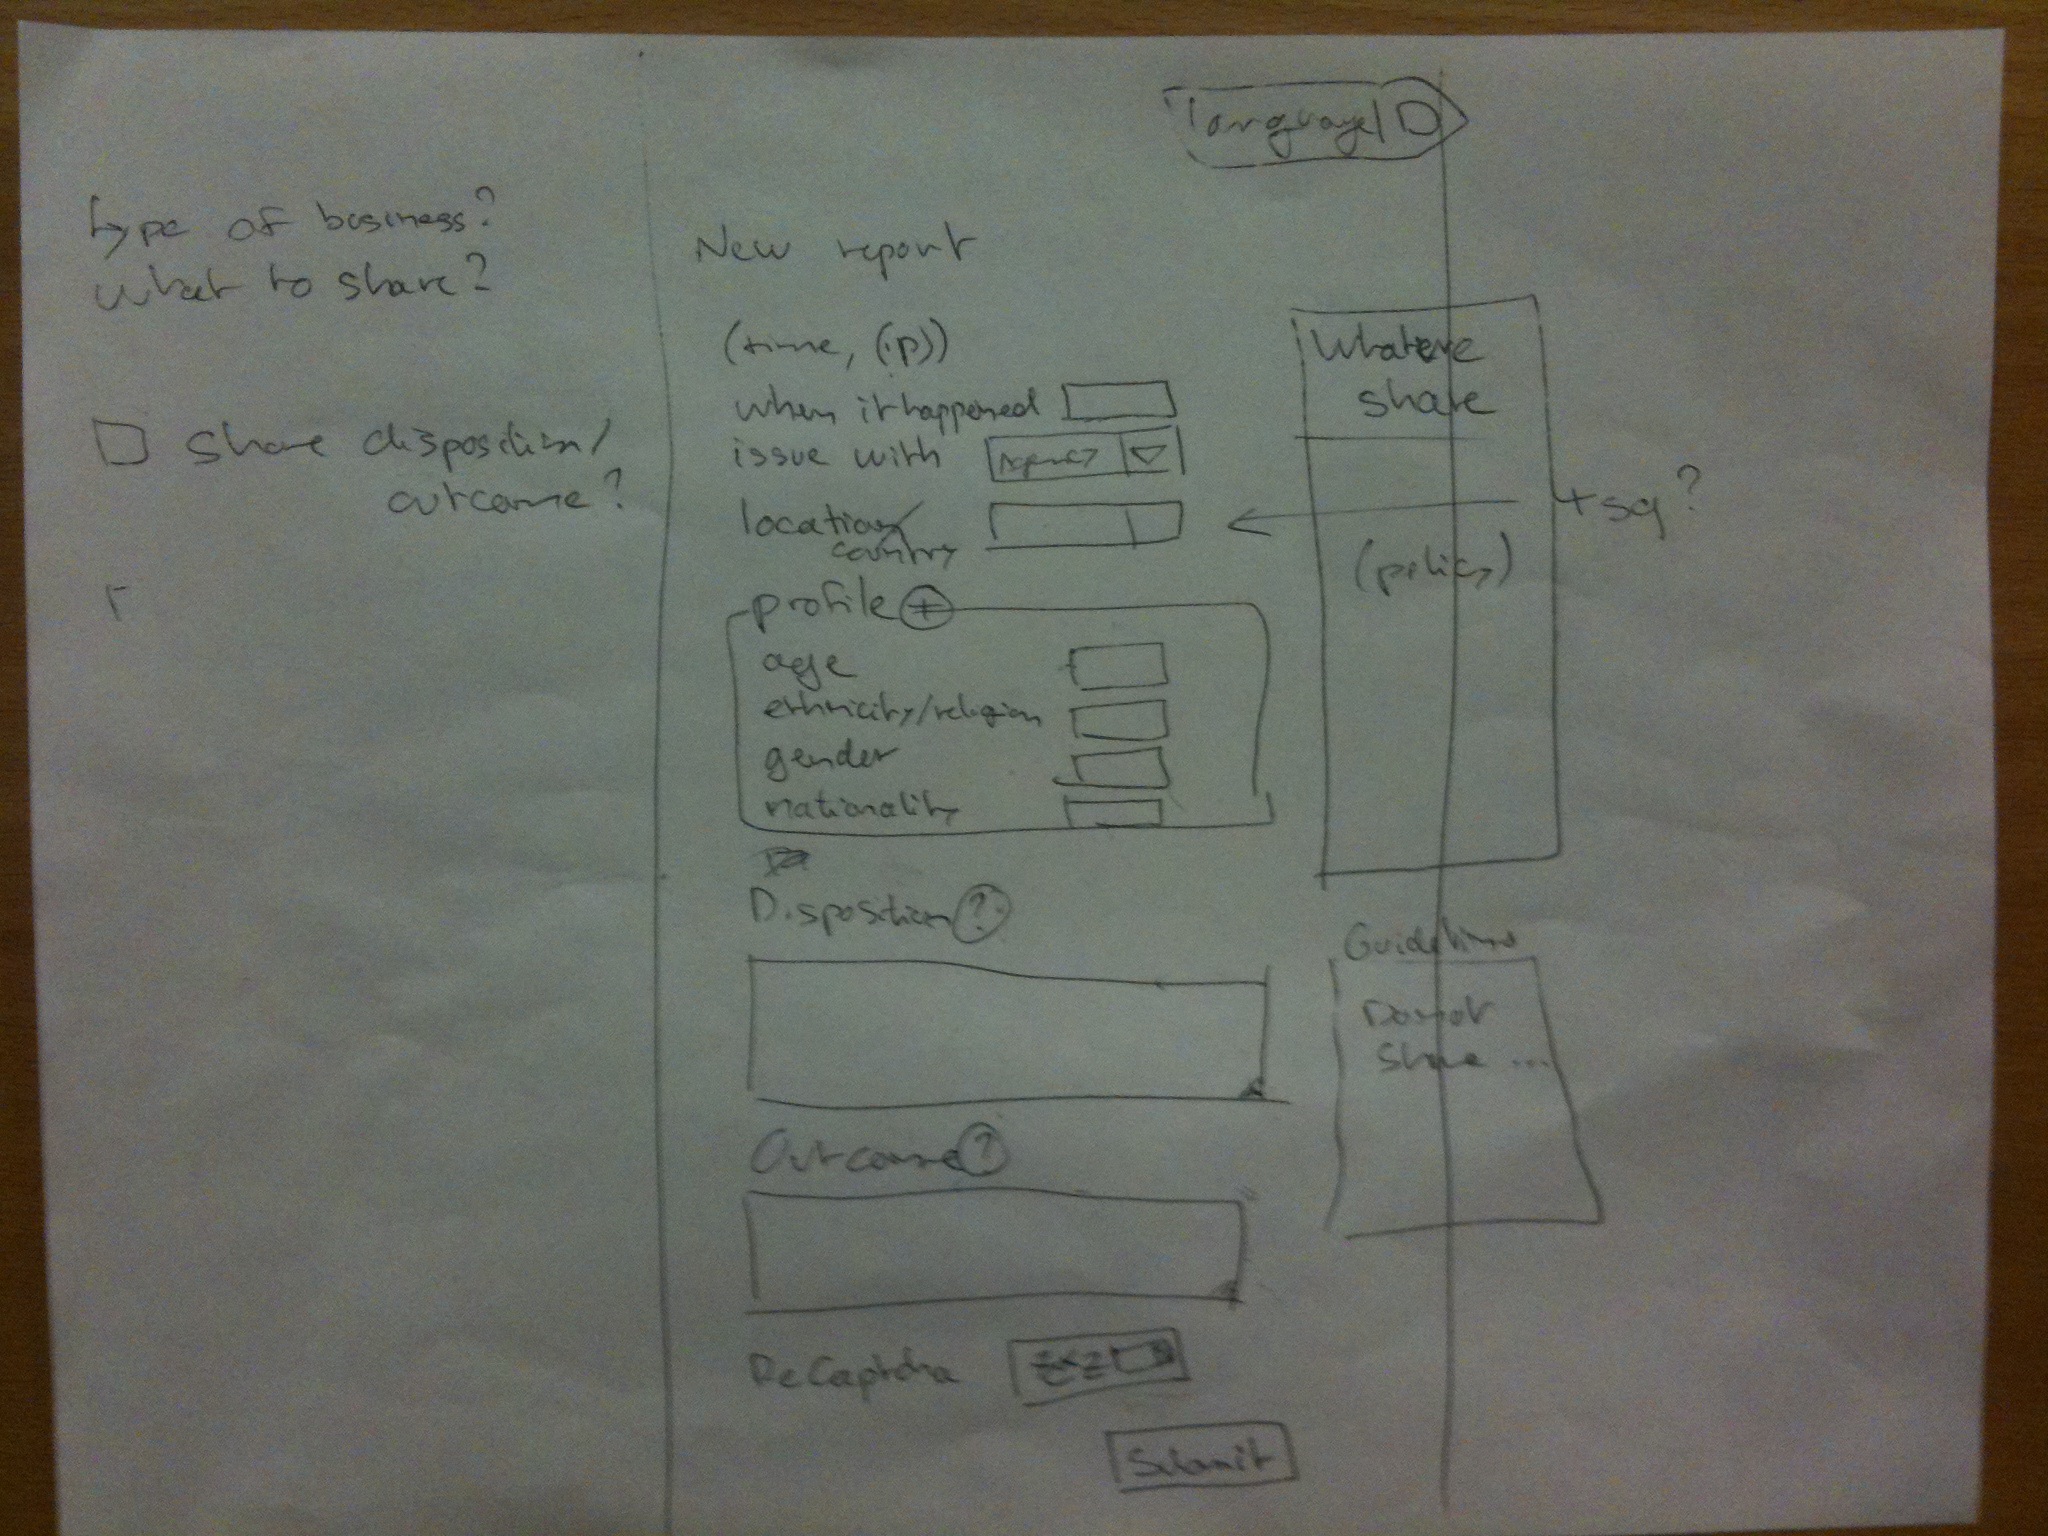 language
type of business?
what to share?
□ share disposition/
outcome?
New report
(time, (ip))
when it happened
issue with
location/
country
profile +
age
ethnicity/religion
gender
nationality
Disposition ?
Outcome ?
ReCaptcha
Submit
share
(policy)
+ sq?
Guidelines
Do not
share ...